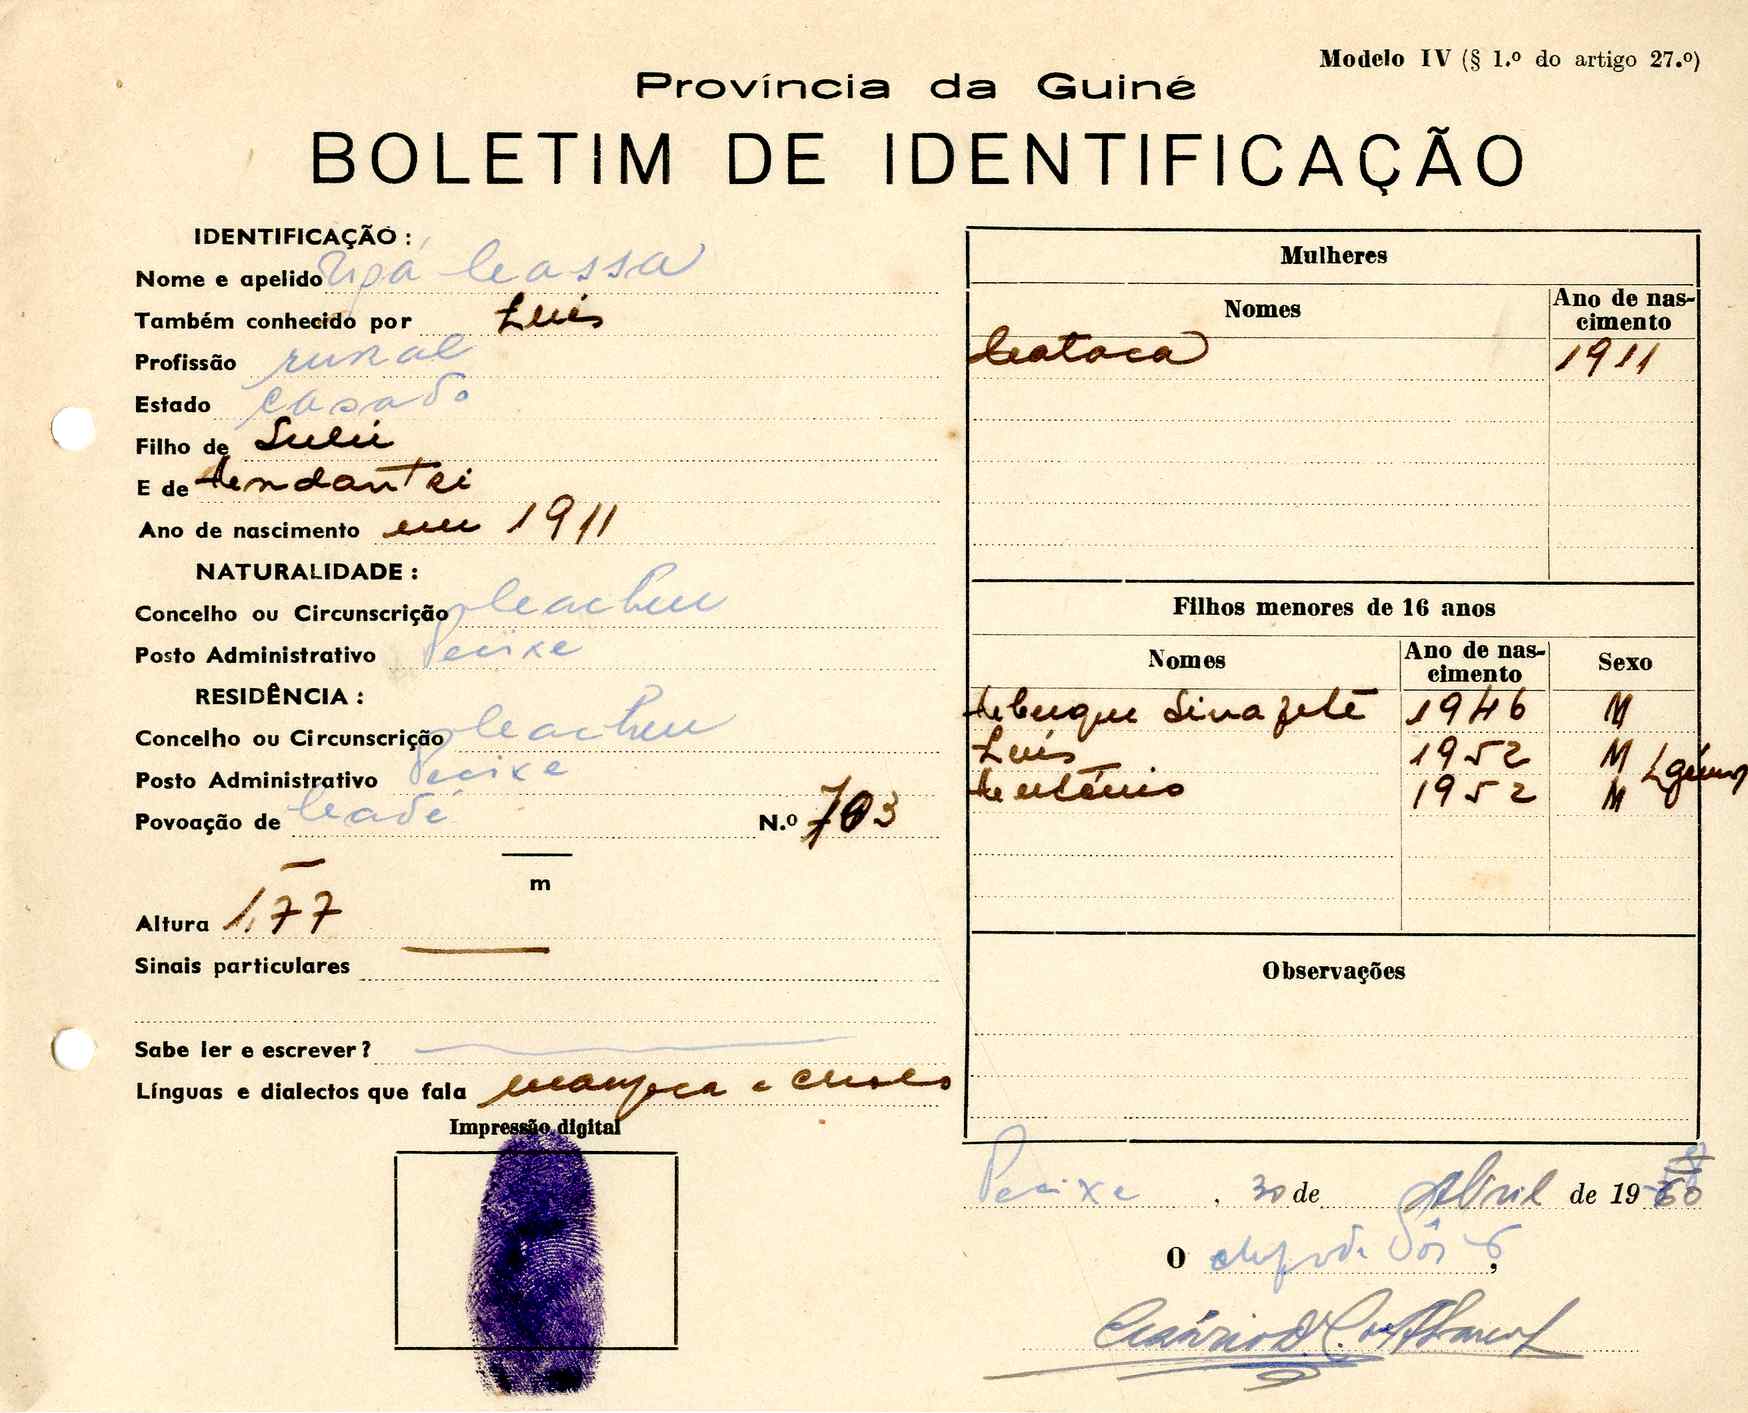 Modelo IV (§ 1.º do artigo 27.º)
Província da Guiné
BOLETIM DE IDENTIFICAÇÃO
IDENTIFICAÇÃO:
Nome e apelido Cassa
Também conhecido por Luis
Profissão rural
Estado casado
Filho de
E de
Ano de nascimento em 1911
NATURALIDADE:
Concelho ou Circunscrição Cacheu
Posto Administrativo Pecixe
RESIDÊNCIA:
Concelho ou Circunscrição Cacheu
Posto Administrativo Pecixe
Povoação de Cadé N.º 703
m
Altura 1,77
Sinais particulares
Sabe ler e escrever?
Línguas e dialectos que fala manjaca e crioulo
Impressão digital
Mulheres
Nomes Ano de nas-
cimento
Cataca 1911
Filhos menores de 16 anos
Nomes Ano de nas- Sexo
cimento
1946 M
Luis 1952 M
António 1952 M
Observações
Pecixe, 30 de Abril de 1960
O chefe de Pôsto,